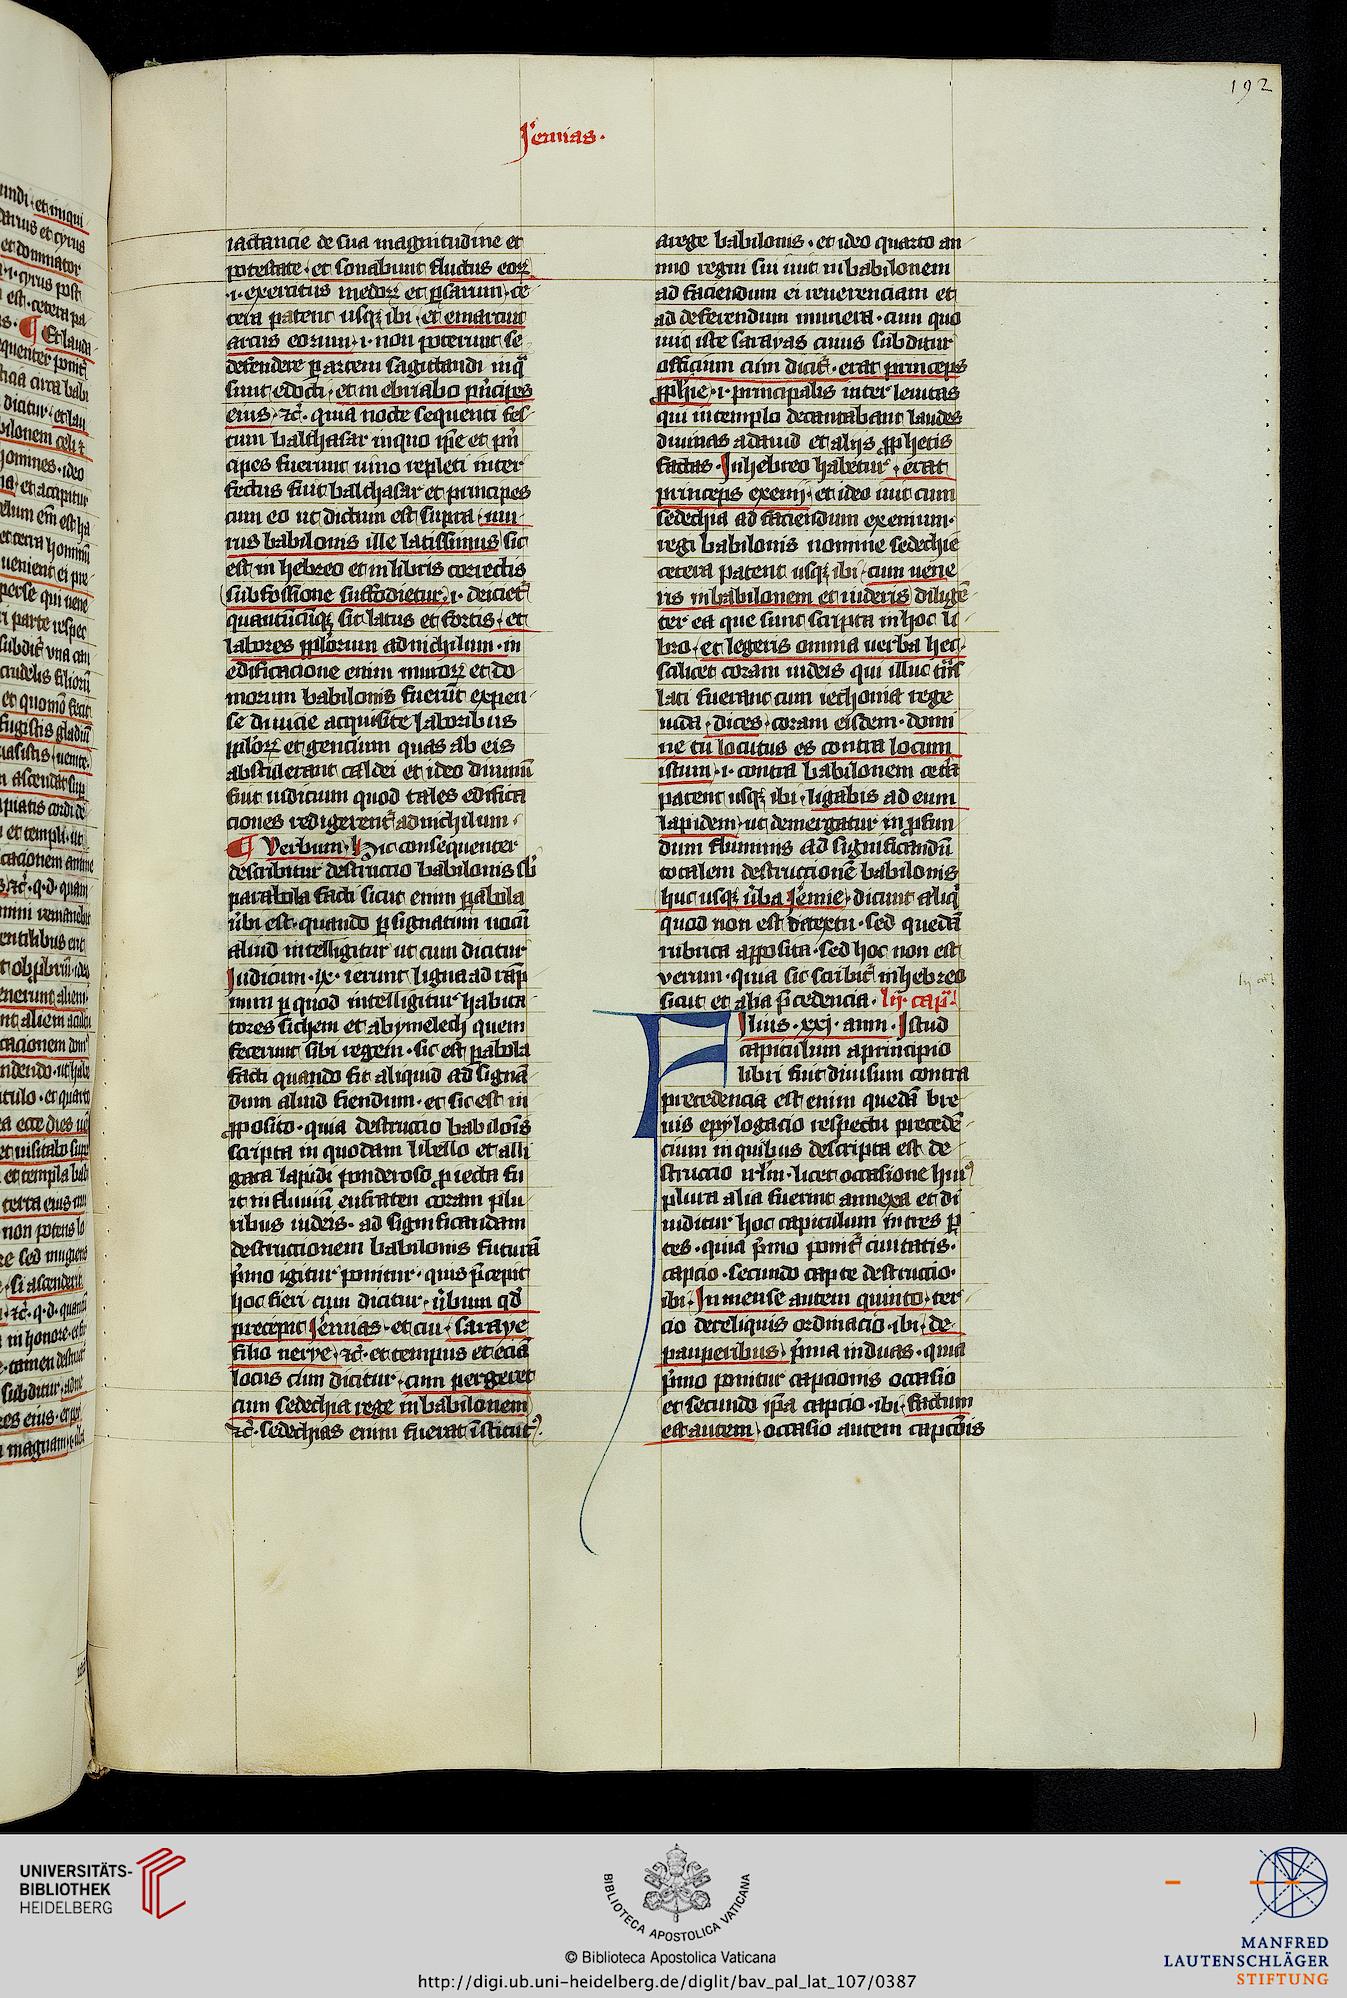 192
Jeremias.
iactancie de sua magnitudine et
potestate · et sonabunt fluctus eorꝝ
·i· exercitus medorꝝ et ꝑsarum · ce
tera patent usqꝫ ibi · et emarcuit
arcus eorum · i · non poterunt se
defendere ꝑ artem sagittandi in q̃
sunt edocti · et inebriabo p̃ncipes
eius · ⁊c̃ · quia nocte sequenti fes
tum balthasar in quo ip̃e et p̃ni
cipes fuerunt uino repleti inter
fectus fuit balthasar et principes
cum eo ut dictum est supra · mu
rus babilonis ille latissimus sic
est in hebreo et in libris correctis
subfossione suffodietur · i · deiciet̃
quantũcũqꝫ sit latus et fortis · et
labores pp̃lorum ad nichilum · in
edificacione enim murorꝝ et do
morum babilonis fuerũt expen
se diuicie acquisite laboribus
pp̃lorꝝ et gencium quas ab eis
abstulerant caldei et ideo diuinũ
fuit iudicium quod tales edifica
ciones redigerent̃ ad nichilum ·
¶ Verbum · Hic consequenter
describitur destructio babilonis sb̃
parabola facti sicut enim ꝑabola
ũbi est · quando ꝑ signatum uocũ
aliud intelligitur ut cum dicitur
Judicum · ix · ierunt ligna ad ram̃
num ꝑ quod intelligitur habita
tores sichem et abymelech quem
fecerunt sibi regem · sic est ꝑabola
facti quando fit aliquid ad signã
dum aliud fiendum · et sic est in
ꝓposito · quia destructio babilonis
scripta in quodam libello et alli
gata lapidi ponderoso ꝓiecta fu
it in fluuiũ eufraten coram plu
ribus iudeis · ad significandam
destructionem babilonis futurã
p̃mo igitur ponitur · quis p̃cepit
hoc fieri cum dicitur · ũbum qd̃
precepit Jeremias · et cui · saraye
filio nerye · ⁊c̃ · et tempus et eciã
locus cum dicitur · cum pergeret
cum sedechia rege in babilonem
⁊c̃ · sedechias enim fuerat ĩstitut⁹
a rege babilonis · et ideo quarto an
no regni sui iuit in babilonem
ad faciendum ei reuerenciam et
ad deferendum munera · cum quo
iuit iste sarayas cuius subditur
officium cum dicit̃ · erat princeps
ꝓph̃ie · i · principalis inter leuitas
qui in templo decantabant laudes
diuinas a dauid et alijs ꝓphetis
factas · In hebreo habetur · erat
princeps exenij · et ideo iuit cum
sedechia ad faciendum exenium
regi babilonis nomine sedechie
cetera patent usqꝫ ibi · cum uene
ris in babilonem et uideris diligẽ
ter ea que sunt scripta in hoc li
bro · et legeris omnia uerba hec ·
scilicet coram iudeis qui illuc trñs
lati fuerant cum iechonia rege
iuda · dices · coram eisdem · domi
ne tu locutus es contra locum
istum · i · contra babilonem cetã
patent usqꝫ ibi · ligabis ad eum
lapidem · ut demergatur in ꝓfun
dum fluminis ad significandũ
totalem destructionẽ babilonis
huc usqꝫ ũba Jeremie · dicunt aliq̃
quod non est de textu · sed quedã
rubrica apposita · sed hoc non est
verum · quia sic scribit̃ in hebreo
sicut et alia p̃cedencia · lij cap̃
Filius · xxj · ann · Istud
capitulum a principio
libri fuit diuisum contra
precedencia est enim quedã bre
uis epylogacio respectu precedẽ
cium in quibus descripta est de
structio irl̃m · licet occasione hui⁹
plura alia fuerint annexa et di
uiditur hoc capitulum in tres ꝑ
tes · quia p̃mo ponit̃ ciuitatis ·
capcio · secundo capte destructio ·
ibi · In mense autem quinto · ter
cio de reliquis ordinacio · ibi · de
pauperibus · p̃ma in duas · quia
p̃mo ponitur capcionis occasio
et secundo ip̃a capcio · ibi · factum
est autem · occasio autem capcõis
UNIVERSITÄTS-
BIBLIOTHEK
HEIDELBERG
BIBLIOTECA APOSTOLICA VATICANA
© Biblioteca Apostolica Vaticana
http://digi.ub.uni-heidelberg.de/diglit/bav_pal_lat_107/0387
MANFRED
LAUTENSCHLÄGER
STIFTUNG